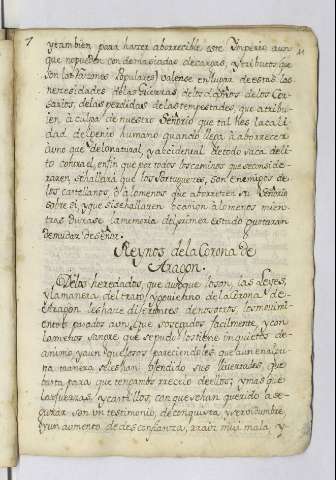 7
y tambien para hacer aborrecible este Imperio aun
que no pueden con demasiadas decargas, y tributos que
son las razones Populares) valense en lugar de estas las
necesidades de las Guerras de los daños de los Cor
sarios, de las perdidas de las tempestades, que atribu
ien à culpa de nuestro Señorio que tal es la cali
dad del genio humano quando llega à aborrecer
à uno que de lo natural, y accidental de todo saca deli
to contra el, en fin que por todos los caminos que se consid
raren se hallarà que los Portugueses, son enemigos de
los castellanos, ò à lo menos que aborrecen su Señorio
sobre si y que si se hallaren ocasion à lo menos mien
tras durase la memoria del primer estado gustaran
de mudar de Señor.
Reynos de la Corona de
Aragon.
De los heredados, que aunque lo son, las Leyes,
y la manera del trato, y govierno de la Corona de
Aragon les hace diferentes de nosotros, los movimi
entos pasados aun que sosegados facilmente, y con
la menos sangre que se pudo los tiene inquietos de
animo, y aun quejosos pareciendoles que aun en alqu
na manera se les han ofendido sus libertades, que
basta para que tengamos recelo de ellos; y mas que
las fuerzas, y castillos, con que se han querido ase
gurar son un testimonio, de conquista, y servidumbre,
y un aumento de desconfianza, raaiz mui mala y